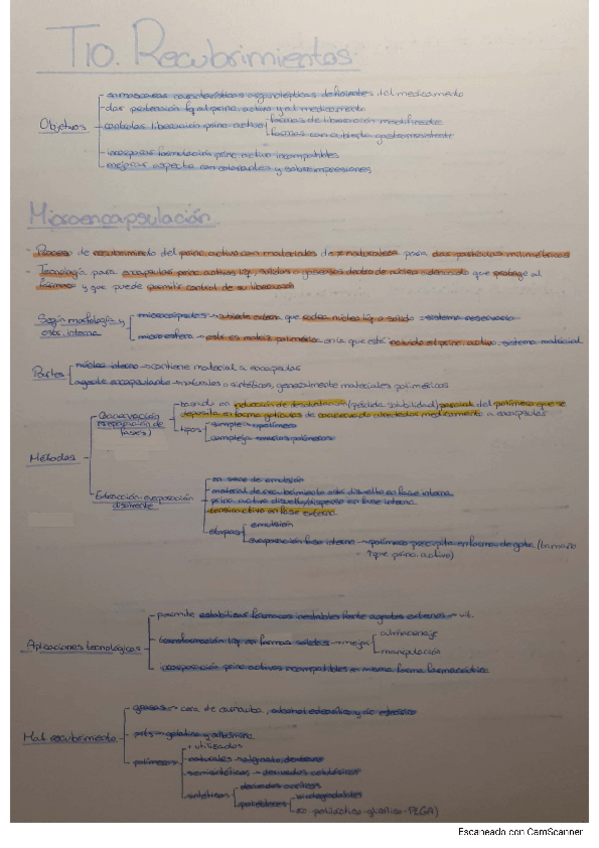 T10. Recubrimientos
Objetivos
enmascarar características organolépticas del medicamento
dar protección al princ. activo y al medicamento
controlar liberación princ. activo
formas de liberación modificada
formas con cubierta gastrorresistente
incorporar princ. activo incompatibles
mejorar aspecto con colorantes y sobreimpresiones
Microencapsulación
- Proceso de recubrimiento del princ. activo con materiales de ≠ naturaleza para dar partículas milimétricas
- Tecnología para encapsular princ. activos líq, sólidos o gaseosos dentro de que protege al
fármaco y que puede permitir control de su liberación
Según morfología y
estr. interna
microcápsulas → que rodea núcleo líq o sólido = sistema reservorio
microesfera → matriz polimérica en la que está incluido el princ. activo. sistema matricial
Partes
núcleo interno → contiene material a encapsular
agente encapsulante → naturales o sintéticos, generalmente materiales poliméricos
Métodos
Coacervación
(separación de
fases)
basado en (pérdida solubilidad) parcial del polímero que se
deposita en forma gotículas de coacervado alrededor medicamento a encapsular
tipos
simple → 1 polímero
compleja → varios polímeros
Extracción-evaporación
disolvente
en seno de emulsión
material de recubrimiento está disuelto en fase interna
princ. activo disuelto/disperso en fase interna
tensioactivo en fase externa
etapas
emulsión
evaporación fase interna → polímero precipita en forma de gota (tamaño
que princ. activo)
Aplicaciones tecnológicas
permite estabilizar fármacos inestables frente agentes externos → vit.
transformación líq en formas sólidas → mejor
almacenaje
manipulación
incorporación princ. activos incompatibles en misma forma farmacéutica
Mat. recubrimiento
grasas → cera de carnauba, alcohol estearílico y ác. esteárico
prots → gelatina y albúmina
polímeros
+ utilizados
naturales → alginato, dextrano
semisintéticos → derivados celulósicos
sintéticos
derivados acrílicos
poliésteres
biodegradables
poliláctico-glicólico - PLGA)
Escaneado con CamScanner